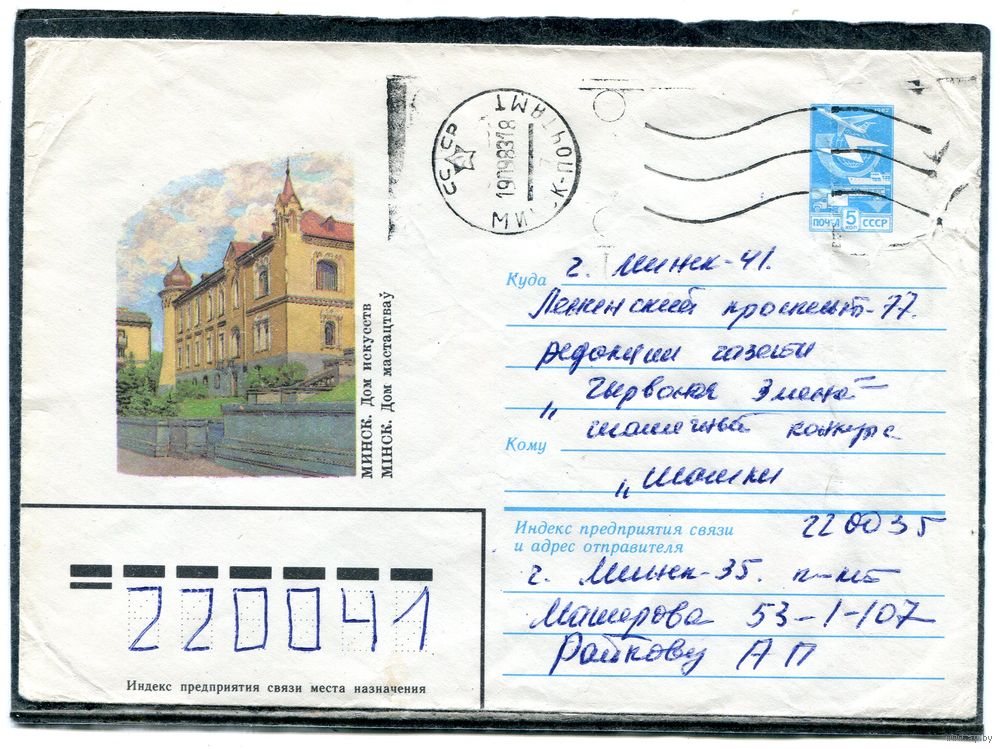 СССР
МИНСК-ПОЧТАМТ
19098318
ПОЧТА 5 КОП СССР
МИНСК. Дом искусств
МІНСК. Дом мастацтваў
Куда г. Минск-41.
Ленинский проспект-77.
редакции газеты
„Чырвоная Змена"
шашечный конкурс
Кому
„Шашки
Индекс предприятия связи и адрес отправителя 220035
г. Минск-35. п-кт
Машерова 53-1-107
Райкову А П
220041
Индекс предприятия связи места назначения